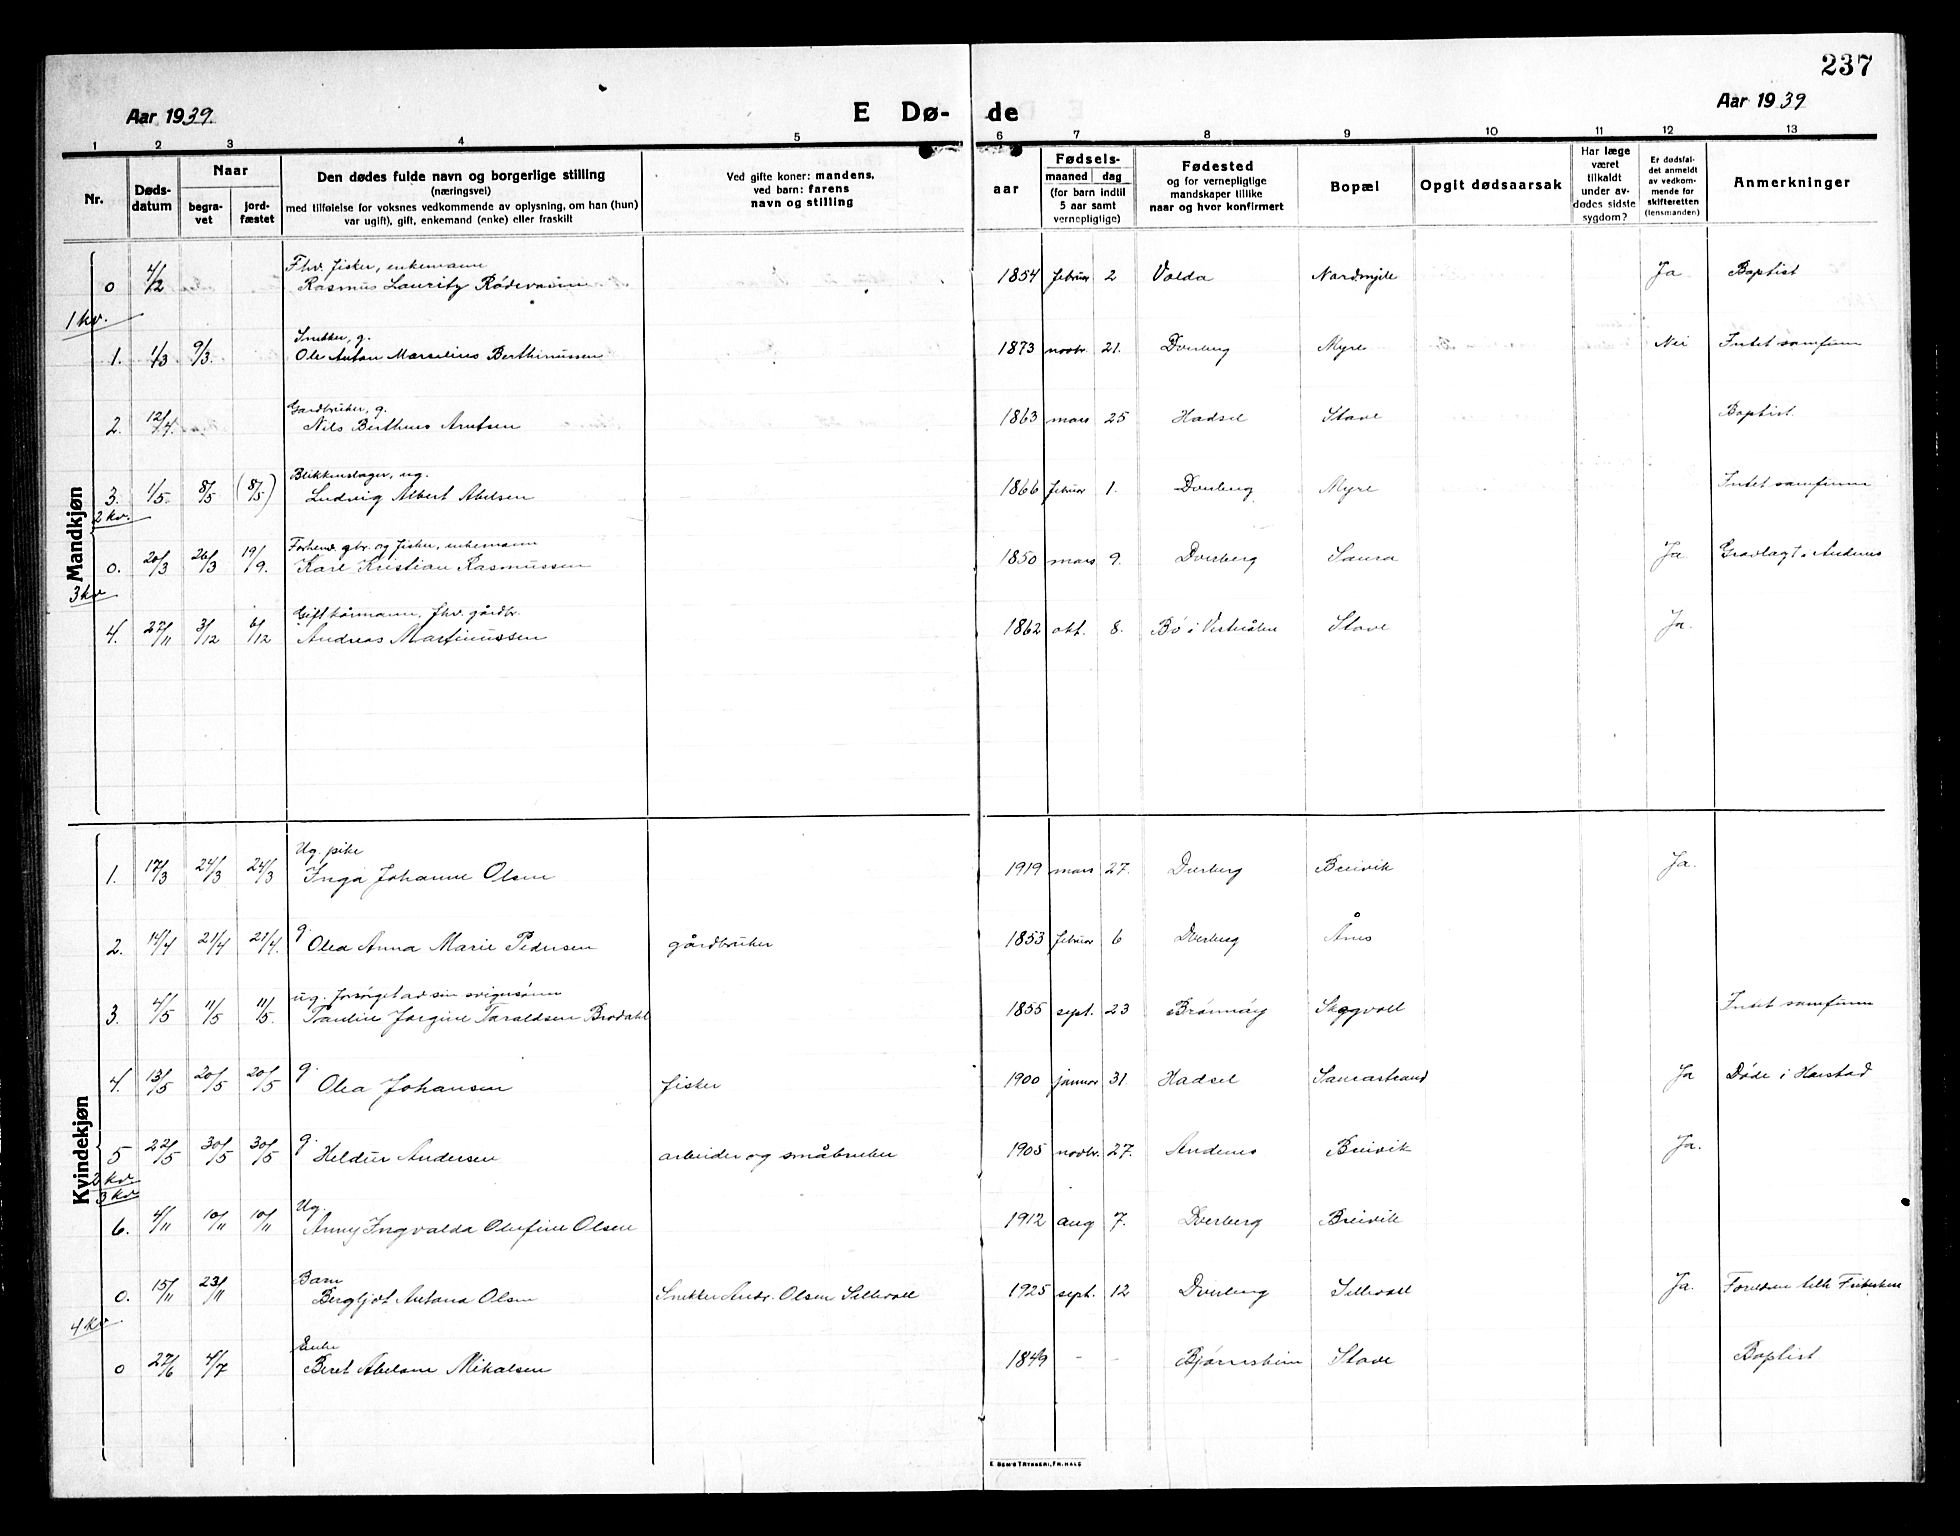 237
Aar 1939.
E Dø- de
Aar 1939
1 2 3 4 5 6 7 8 9 10 11 12 13
Nr.
Døds-
datum
Naar
begra-
vet
jord-
fæstet
Den dødes fulde navn og borgerlige stilling
(næringsvei)
med tilføielse for voksnes vedkommende av oplysning, om han (hun)
var ugift), gift, enkemand (enke) eller fraskilt
Ved gifte koner: mandens,
ved barn: farens
navn og stilling
aar
Fødsels-
maaned dag
(for barn indtil
5 aar samt
vernepligtige)
Fødested
og for vernepligtige
mandskaper tillike
naar og hvor konfirmert
Bopæl
Opgit dødsaarsak
Har læge
været
tilkaldt
under av-
dødes sidste
sygdom?
Er dødsfal-
det anmeldt
av vedkom-
mende for
skifteretten
(lensmanden)
Anmerkninger
Mandkjøn
Fhv. fisker, enkemann
0 4/2 Rasmus Lauritz 1854 februar 2 Volda Nordmjele Ja Baptist
1 kv.
Snekker, g.
1. 1/3 9/3. Ole Anton Marselius Berthinussen 1873 novbr. 21. Dverberg Myre Nei Intet samfunn
Gardbruker, g.
2. 12/4. Nils Bertheus Arntsen 1863 mars 25 Hadsel Stave Baptist.
Blikkenslager, ug.
3. 1/5. 8/5 (8/5) Ludvig Albert Abelsen 1866 februar 1. Dverberg Myre Intet samfunn
2 kv.
Forhenv. gbr. og fisker, enkemann
0. 20/3 26/3 19/9. Karl Kristian Rasmussen 1850 mars 9. Dverberg Saura Ja Gravlagt i Andenes
3 kv
Gift kårmann, fhv. gårdbr.
4. 27/11 3/12 6/12 Andreas Martinussen 1862 okt. 8. Bø i Vesterålen Stave Ja.
Kvindekjøn
Ug. pike
1. 17/3 24/3 24/3 Inga Johanne Olsen 1919 mars 27. Dverberg Breivik Ja.
g.
2. 14/4 21/4 21/4. Olea Anna Marie Pedersen gårdbruker 1853 februar 6 Dverberg Ånes
ug. forsørget av sin svigersønn
3. 4/5 11/5 11/5. Pauline Jørgine Taraldsen Brodahl 1855 sept. 23 Brønnøy Skogvoll Intet samfunn
g.
4. 13/5 20/5 20/5 Olea Johansen fisker 1900 januar 31. Hadsel Saurastrand Ja Døde i Harstad
g.
5 22/5 30/5 30/5 Heldur Andersen arbeider og småbruker 1905 novbr. 27. Andenes Breivik Ja.
2 kv
3 kv
Ug.
6. 4/11 10/11 10/11 Anny Ingvalda Olufine Olsen 1912 aug 7. Dverberg Breivik
Barn
0. 15/11 23/11 Bergljot Antona Olsen Snekker Andr. Olsen Sellevoll 1925 sept. 12 Dverberg Sellevoll Ja. Foreldrene tilh. Frikirken
4 kv
Enke
0 27/6 4/7 Beret Abelone Mikalsen 1849 - - Bjørnskinn Stave Baptist
E SEM'S TRYKKERI, FR.HALD